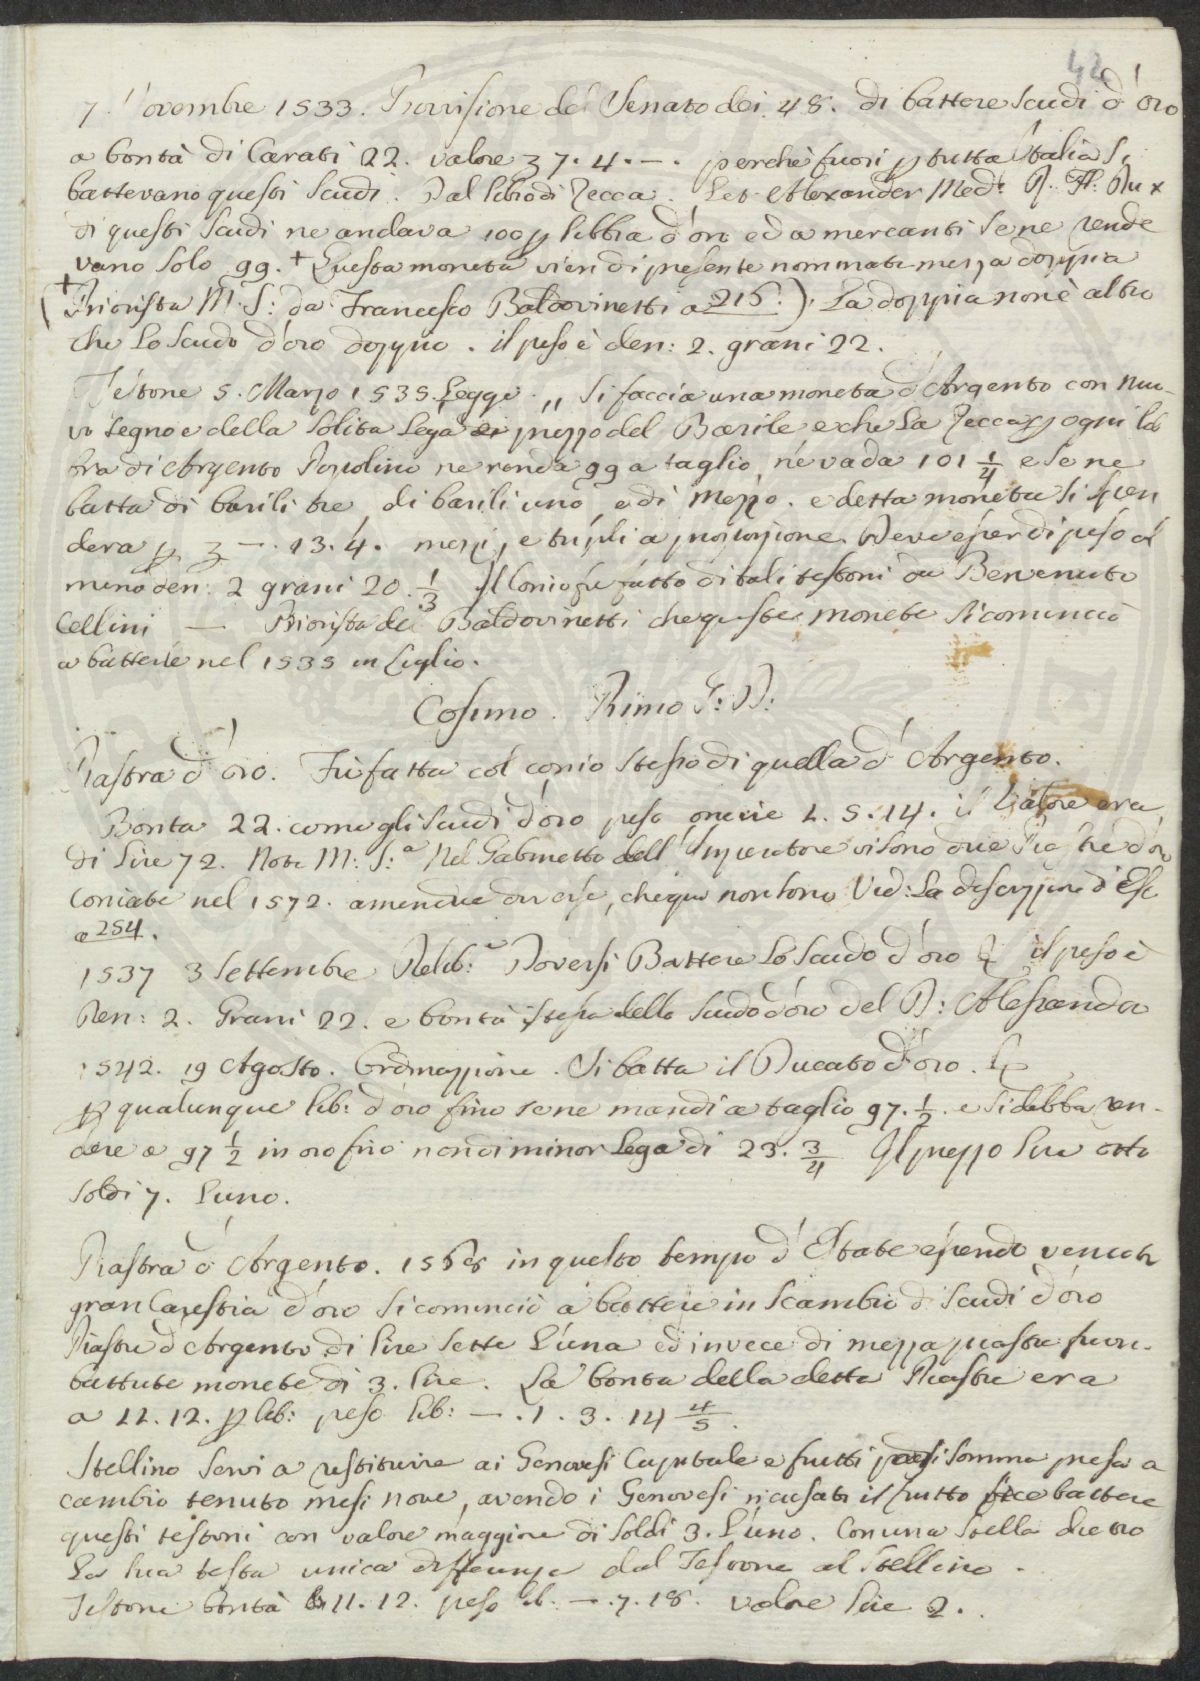 42
7. Novembre 1533. Provisione del Senato dei 48. di battere scudi d'oro
a bontà di Carati 22. valore 37.4.—. perchè fuori p tutta Italia si
battevano questi scudi. Dal libro di Zecca. Leg. Alexander Med: R. Fl: Dux
di questi scudi ne andava 100 p libbra d'oro ed a mercanti se ne rende
vano solo 99. + Questa moneta vien di presente nominata mezza doppia
(+ Priorista M. S: da Francesco Baldovinetti a 216.). La doppia non è altro
che lo scudo d'oro doppio. il peso è den: 2. grani 22.
Testone 5. Marzo 1535. Legge „ si faccia una moneta d'Argento con nuo-
vo segno e della solita lega di prezzo del Barile e che la Zecca p ogni lib
bra di Argento Popolino ne renda 99 a taglio ne vada 101 1/4 e se ne
batta di barili tre, di barili uno, e di mezzo. e detta moneta si spen
derà p 3 —. 13. 4. mezzi, e tripli a proporzione. Deve esser di peso al
meno den: 2 grani 20. 1/3 Il Conio fu fatto di tali testoni da Benvenuto
Cellini — Priorista del Baldovinetti che queste monete si cominciò
a batterle nel 1535 in Luglio.
Cosimo Primo G: D:
Piastra d'oro. Fù fatta col conio stesso di quella d'Argento.
Bontà 22. come gli scudi d'oro peso oncie 1. 5. 14. il valore era
di Lire 72. Nota M: S:a Nel Gabinetto dell'Imperatore vi sono due Piastre d'oro
Coniate nel 1572. amendue diverse, che qui non sono Ved: La descrizzione d'Esse
a 254.
1537 3 Settembre Delib:e Doversi Battere Lo scudo d'oro il peso è
Den: 2. Grani 22. e bontà istessa dello scudo d'oro del D: Alessandro
1542. 19 Agosto. Ordinazzione. Si batta il Ducato d'oro.
p qualunque lib: d'oro fino se ne mandi a taglio 97. 1/2. e si debba ren-
dere a 97 1/2 in oro fino non di minor Lega di 23. 3/4 Il prezzo Lire otto
soldi 7. l'uno.
Piastra d'Argento. 1568 in questo tempo d'Estate essendo venuta
gran Carestia d'oro si cominciò a battere in scambio di scudi d'oro
Piastre d'Argento di lire sette l'una ed invece di mezza piastra furon
battute monete di 3. lire. La bontà della detta Piastra era
a 11. 12. p lib: peso lib: —. 1. 3. 14 4/5.
Stellino servì a restituire ai Genovesi Capitale e frutti somma presa a
cambio tenuto mesi nove, avendo i Genovesi ricusato il frutto fece battere
questi testoni con valore maggiore di soldi 3. l'uno. Con una stella dietro
la sua testa unica differenza dal Testone al Stellino.
Testone bontà 11. 12. peso lib. —. 7. 18. valore lire 2.